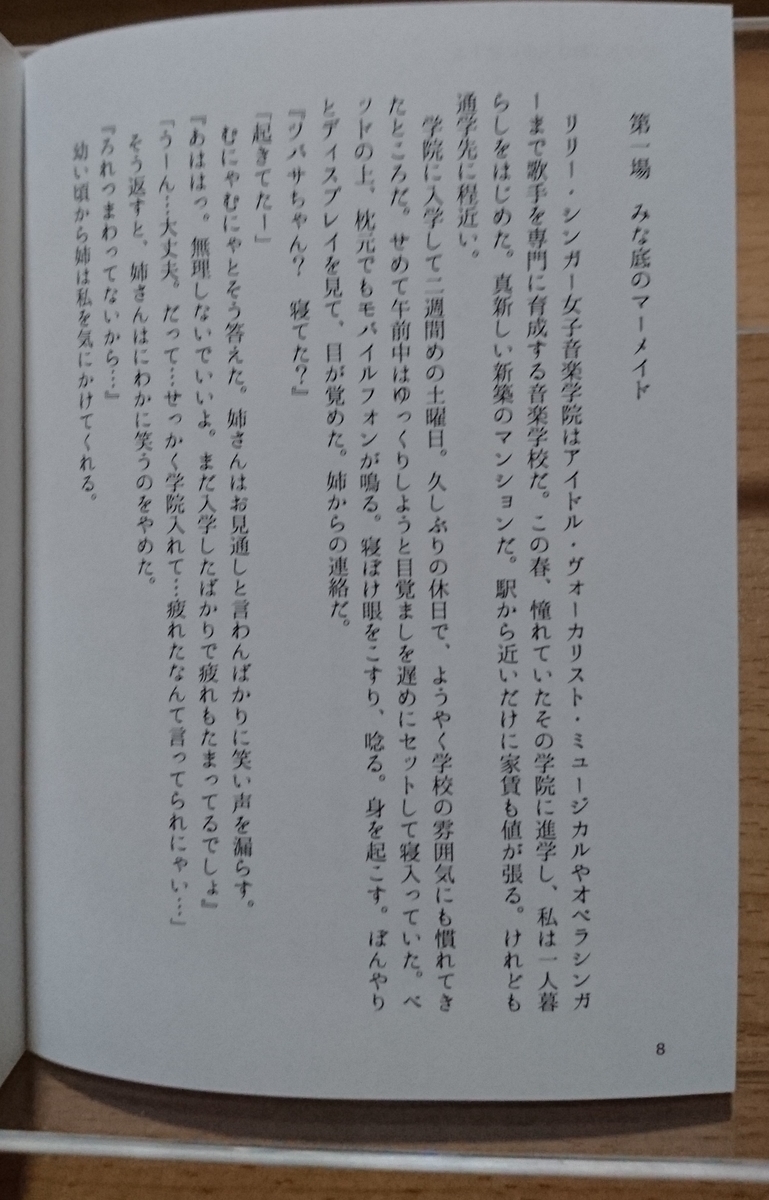 第一場　みな底のマーメイド
リリー・シンガー女子音楽学院はアイドル・ヴォーカリスト・ミュージカルやオペラシンガ
ーまで歌手を専門に育成する音楽学校だ。この春、憧れていたその学院に進学し、私は一人暮
らしをはじめた。真新しい新築のマンションだ。駅から近いだけに家賃も値が張る。けれども
通学先に程近い。
学院に入学して二週間めの土曜日。久しぶりの休日で、ようやく学校の雰囲気にも慣れてき
たところだ。せめて午前中はゆっくりしようと目覚ましを遅めにセットして寝入っていた。ベ
ッドの上、枕元でもモバイルフォンが鳴る。寝ぼけ眼をこすり、唸る。身を起こす。ぼんやり
とディスプレイを見て、目が覚めた。姉からの連絡だ。
『ツバサちゃん？　寝てた？』
「起きてたー」
むにゃむにゃとそう答えた。姉さんはお見通しと言わんばかりに笑い声を漏らす。
『あははっ。無理しないでいいよ。まだ入学したばかりで疲れもたまってるでしょ』
「うーん…大丈夫。だって…せっかく学院入れて…疲れたなんて言ってられにゃい…」
そう返すと、姉さんはにわかに笑うのをやめた。
『ろれつまわってないから…』
幼い頃から姉は私を気にかけてくれる。
8